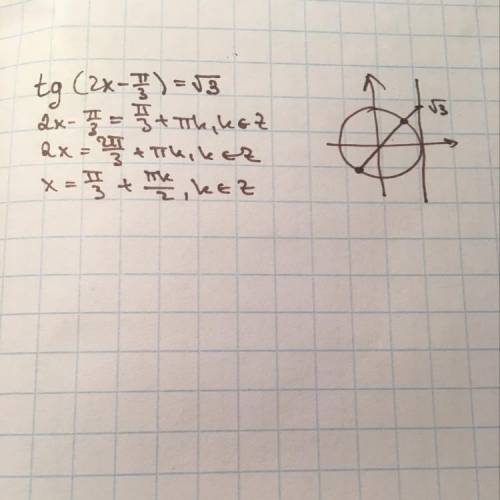 tg (2x - π/3) = √3
2x - π/3 = π/3 + πk, k ∈ Z
2x = 2π/3 + πk, k ∈ Z
x = π/3 + πk/2, k ∈ Z
√3